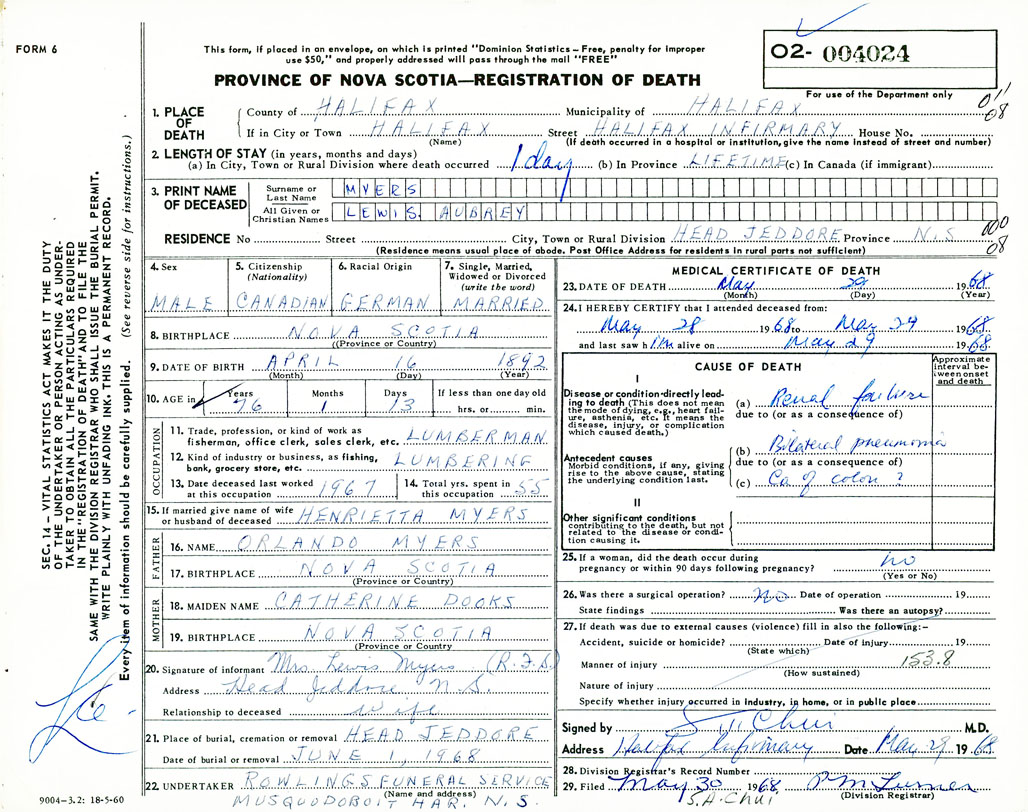 FORM 6
This form, if placed in an envelope, on which is printed "Dominion Statistics – Free, penalty for improper
use $50," and properly addressed will pass through the mail "FREE"
PROVINCE OF NOVA SCOTIA—REGISTRATION OF DEATH
O2- 004024
For use of the Department only
011
08
1. PLACE OF DEATH
County of HALIFAX Municipality of HALIFAX
If in City or Town HALIFAX Street HALIFAX INFIRMARY House No.
(Name) (If death occurred in a hospital or institution, give the name instead of street and number)
2. LENGTH OF STAY (in years, months and days)
(a) In City, Town or Rural Division where death occurred 1 day (b) In Province LIFETIME (c) In Canada (if immigrant)
3. PRINT NAME OF DECEASED
Surname or Last Name MYERS
All Given or Christian Names LEWIS. AUBREY
000
08
RESIDENCE No Street City, Town or Rural Division HEAD JEDDORE Province N.S
(Residence means usual place of abode. Post Office Address for residents in rural parts not sufficient)
4. Sex
MALE
5. Citizenship (Nationality)
CANADIAN
6. Racial Origin
GERMAN
7. Single, Married, Widowed or Divorced (write the word)
MARRIED
8. BIRTHPLACE NOVA SCOTIA
(Province or Country)
9. DATE OF BIRTH APRIL 16 1892
(Month) (Day) (Year)
10. AGE in Years 76 Months 1 Days 13 If less than one day old hrs. or min.
OCCUPATION
11. Trade, profession, or kind of work as
fisherman, office clerk, sales clerk, etc. LUMBERMAN
12. Kind of industry or business, as fishing,
bank, grocery store, etc. LUMBERING
13. Date deceased last worked
at this occupation 1967
14. Total yrs. spent in
this occupation 55
15. If married give name of wife
or husband of deceased HENRIETTA MYERS
FATHER
16. NAME ORLANDO MYERS
17. BIRTHPLACE NOVA SCOTIA
(Province or Country)
MOTHER
18. MAIDEN NAME CATHERINE DOOKS
19. BIRTHPLACE NOVA SCOTIA
(Province or Country
20. Signature of informant Mrs Lewis Myers (R.F.S)
Address Head Jeddore N.S.
Relationship to deceased wife
21. Place of burial, cremation or removal HEAD JEDDORE
Date of burial or removal JUNE 1, 1968
22. UNDERTAKER ROWLINGS FUNERAL SERVICE
(Name and address)
MUSQUODOBOIT HAR. N.S.
MEDICAL CERTIFICATE OF DEATH
23. DATE OF DEATH May 29 1968
(Month) (Day) (Year)
24. I HEREBY CERTIFY that I attended deceased from:
May 28 1968 to May 29 1968
and last saw him alive on May 29 1968
CAUSE OF DEATH
Approximate interval between onset and death
I
Disease or condition directly leading to death (This does not mean
the mode of dying, e.g., heart failure, asthenia, etc. It means the
disease, injury, or complication
which caused death.)
(a) Renal failure
due to (or as a consequence of)
Antecedent causes
Morbid conditions, if any, giving
rise to the above cause, stating
the underlying condition last.
(b) Bilateral pneumonia
due to (or as a consequence of)
(c) Ca of colon ?
II
Other significant conditions
contributing to the death, but not
related to the disease or condition causing it.
25. If a woman, did the death occur during
pregnancy or within 90 days following pregnancy? no
(Yes or No)
26. Was there a surgical operation? no Date of operation 19
State findings Was there an autopsy?
27. If death was due to external causes (violence) fill in also the following:–
Accident, suicide or homicide? Date of injury 19
(State which)
Manner of injury 153.8
(How sustained)
Nature of injury
Specify whether injury occurred in industry, in home, or in public place
Signed by S. Chui M.D.
Address Halifax Infirmary Date May 29 1968
28. Division Registrar's Record Number
29. Filed May 30 1968
(Division Registrar)
S.A. Chui
SEC. 14 – VITAL STATISTICS ACT MAKES IT THE DUTY
OF THE UNDERTAKER OR PERSON ACTING AS UNDER-
TAKER TO OBTAIN ALL THE PARTICULARS REQUIRED
IN THE "REGISTRATION OF DEATH" AND TO FILE THE
SAME WITH THE DIVISION REGISTRAR WHO SHALL ISSUE THE BURIAL PERMIT.
WRITE PLAINLY WITH UNFADING INK. THIS IS A PERMANENT RECORD.
Every item of information should be carefully supplied. (See reverse side for instructions.)
9004–3.2: 18-5-60